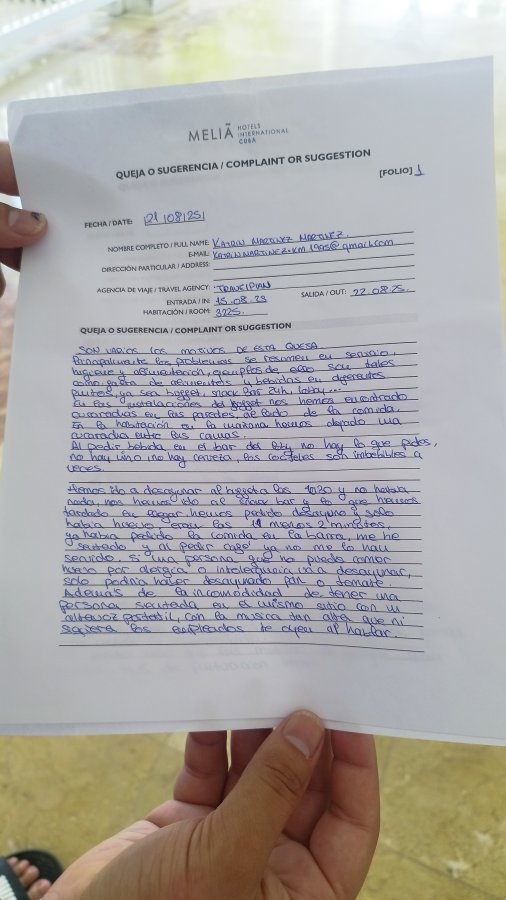 MELIÃ HOTELS INTERNATIONAL CUBA
QUEJA O SUGERENCIA / COMPLAINT OR SUGGESTION
[FOLIO] 1
FECHA / DATE: |21|08|25|
NOMBRE COMPLETO / FULL NAME: KATRIN MARTINEZ MARTINEZ
E-MAIL: @gmail.com
DIRECCIÓN PARTICULAR / ADDRESS:
AGENCIA DE VIAJE / TRAVEL AGENCY: TRAVELPLAN
ENTRADA / IN: 15.08.25 SALIDA / OUT: 22.08.25
HABITACIÓN / ROOM: 3225
QUEJA O SUGERENCIA / COMPLAINT OR SUGGESTION
SON VARIOS LOS MOTIVOS DE ESTA QUEJA.
Principalmente los problemas se resumen en servicio,
higiene y alimentación, ejemplos de ello son tales
como falta de alimentos y bebidas en diferentes
puntos, ya sea buffet, snack bar 24h, lobby...
En las instalaciones del buffet nos hemos encontrado
cucarachas en las paredes, al lado de la comida.
En la habitación en la mañana hemos dejado una
cucaracha entre las camas.
Al pedir bebida, en el bar del lobby, no hay lo que pides,
no hay vino, no hay cerveza, los cocteles son imbebibles a
veces.
Hemos ido a desayunar al buffet a las 1020 y no había
nada, nos hemos ido al snack bar y lo que hemos
tardado en llegar, hemos pedido desayuno y solo
había huevo, eran las 11 menos 2 minutos,
ya había pedido la comida en la barra, me he
sentado y al pedir café ya no me lo han
servido. Si una persona que no puede comer
huevo por alergia o intolerancia va a desayunar,
solo podría haber desayunado pan o tomate.
Además de la incomodidad de tener una
persona sentada en el mismo sitio con un
altavoz portatil, con la música tan alta que ni
siquiera los empleados te oyen al hablar.